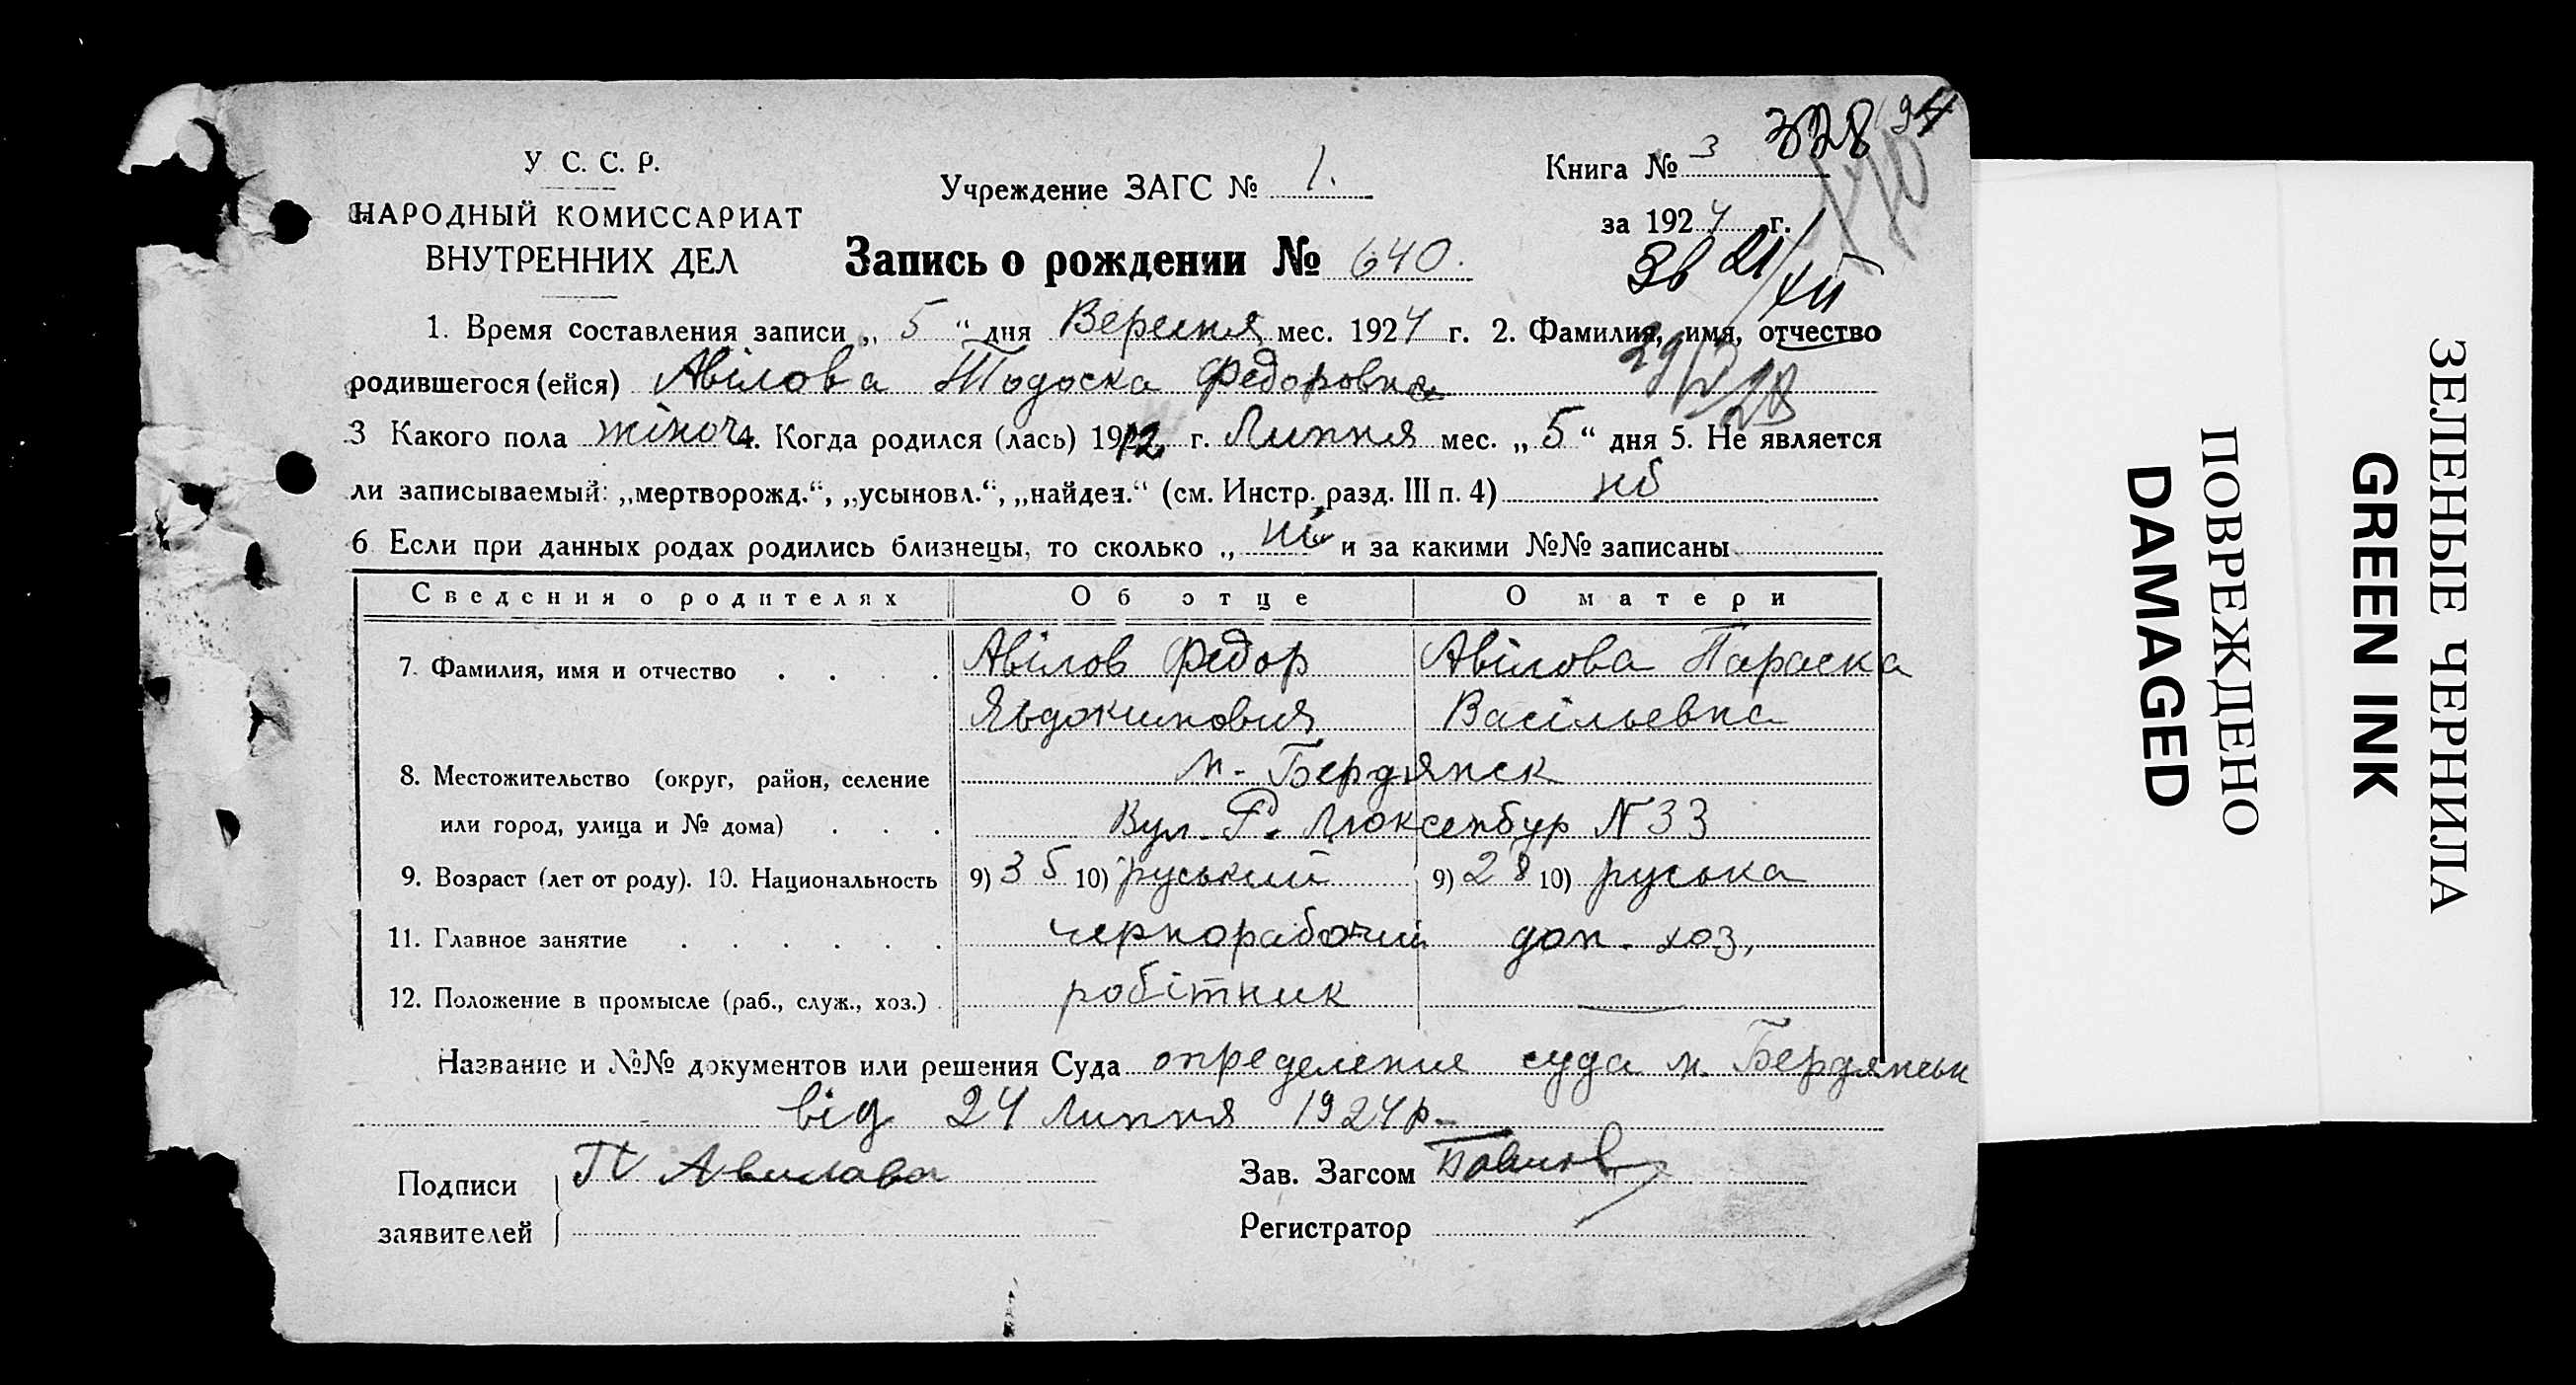 328
94
У С. С. Р.
НАРОДНЫЙ КОМИССАРИАТ
ВНУТРЕННИХ ДЕЛ
Учреждение ЗАГС № 1.
Книга № 3
за 1924 г.
Запись о рождении № 640.
Зв 21/XII
1. Время составления записи „ 5 “ дня Вересня мес. 1924 г. 2. Фамилия, имя, отчество
родившегося (ейся) Авілова Тодоска Федоровна
3 Какого пола жіноч 4. Когда родился (лась) 1912 г. Липня мес. „ 5 “ дня 5. Не является
ли записываемый: „мертворожд.“, „усыновл.“, „найден.“ (см. Инстр. разд. III п. 4)
6 Если при данных родах родились близнецы, то сколько „ ні и за какими №№ записаны
Сведения о родителях Об отце О матери
7. Фамилия, имя и отчество . . . . Авілов Федор Авілова Параска
Явдокимович Васільевна
8. Местожительство (округ, район, селение м. Бердянск
или город, улица и № дома) . . . Вул. Р. Люксенбур N 33
9. Возраст (лет от роду). 10. Национальность 9) 35 10) руський 9) 28 10) руська
11. Главное занятие . . . . . . чернорабочий дом. хоз,
12. Положение в промысле (раб., служ., хоз.) . робітник —
Название и №№ документов или решения Суда определение суда м. Бердянськ
від 24 липня 1924 р.
Подписи П Авилова
заявителей
Зав. Загсом
Регистратор
ПОВРЕЖДЕНО
DAMAGED
ЗЕЛЕНЫЕ ЧЕРНИЛА
GREEN INK